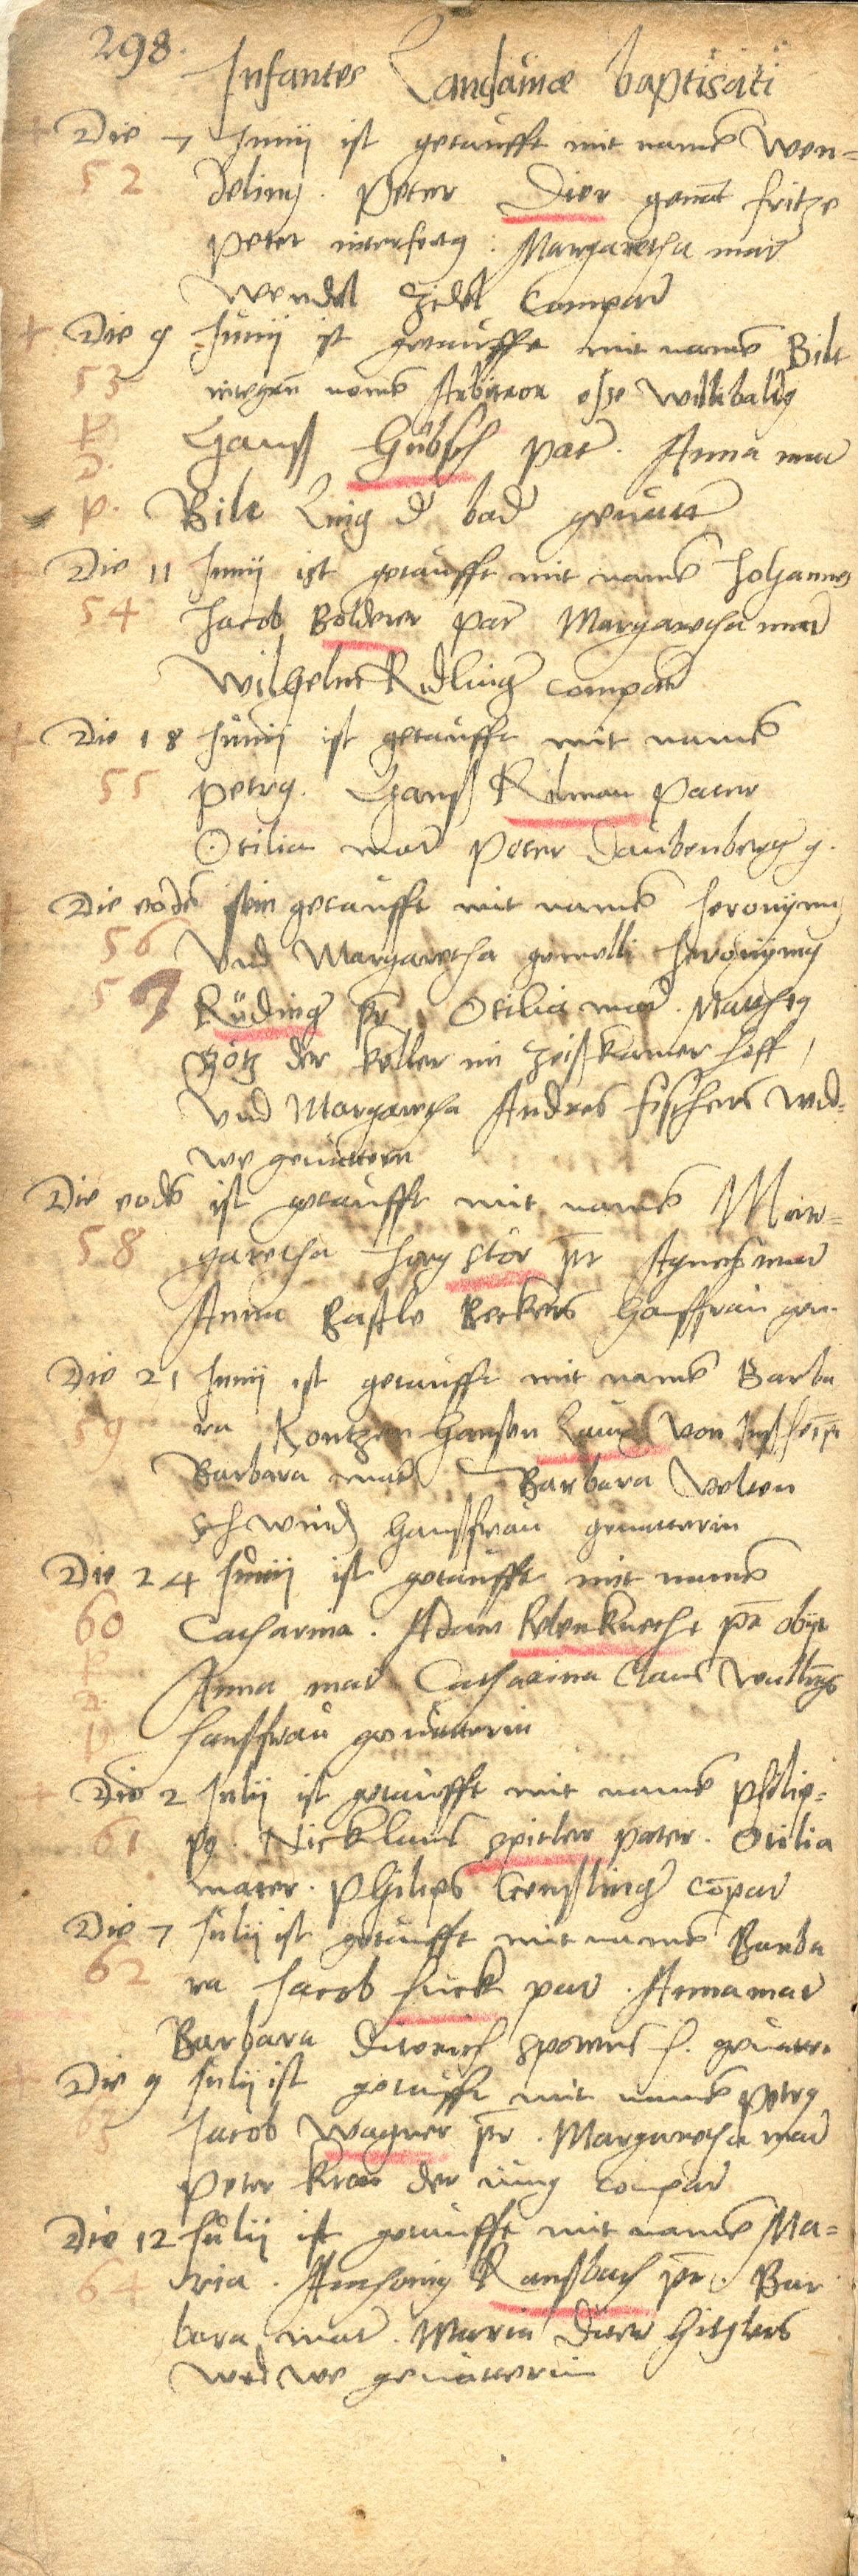 298.
Infantes Landauiae baptisati
Die 7 Junij ist getaufft mit name Wen=
52 delinus. Peter Dier genat fritze
Peter : Margaretha mater
Wendel Zidel Compar
Die 9 Junij ist getaufft mit name Bilt
53 nomen Arbitror esse Willibaldus
P Hanß Hübsch pater. Anna mater
D.
P. Bilt der bader geuatter
Die 11 Junij ist getaufft mit name Johannes
54 Jacob Bolderer pater Margaretha mater
Wilhelm Ridlinger compater
Die 18 Junij ist getaufft mit name
55 Petrus. Hanß Kilman Pater
Otilia mater Peter Daubenberger g.
Die eodem sein getaufft mit name Jeronijmus
56 Vnd Margaretha gemelli Jeronijmus
57 Rüdinger pr Otilia mater. Mattheus
Götz der keller im Zeißkamer hoff,
Vnd Margaretha Andres fischers wid=
we geuattern
Die eode ist getaufft mit name Mar=
58 garetha Jerg Stör pr Agnes mater
Anna Bastle Beckers haußfrau geu.
Die 21 Junij ist getaufft mit name Barba
59 ra Kontzen Hansen Laux von
Barbara mater Barbara Velten
Schwind haußfrau geuatterin
Die 24 Junij ist getaufft mit name
60 Catharina. Adam Rebenknecht pr obijt
P Anna mater Catharina Claus
D.
P haußfrau geuatterin
Die 2 Julij ist getaufft mit name Philip=
61 pus. Nicklaus Spitler pater. Otilia
mater. Philips Genßlinger copater
Die 7 Julij ist getaufft mit name Barba
62 ra Jacob huck pater. Anna mater
Barbara Dieterich h. geuatter
Die 9 Julij ist getaufft mit name Petrus
63 Jacob Wagner pr. Margaretha mater
Peter Kron der iung compater
Die 12 Julij ist getaufft mit name Ma=
64 ria. Anthonius Ranßbach pr. Bar
bara mater. Maria
widwe geuatterin